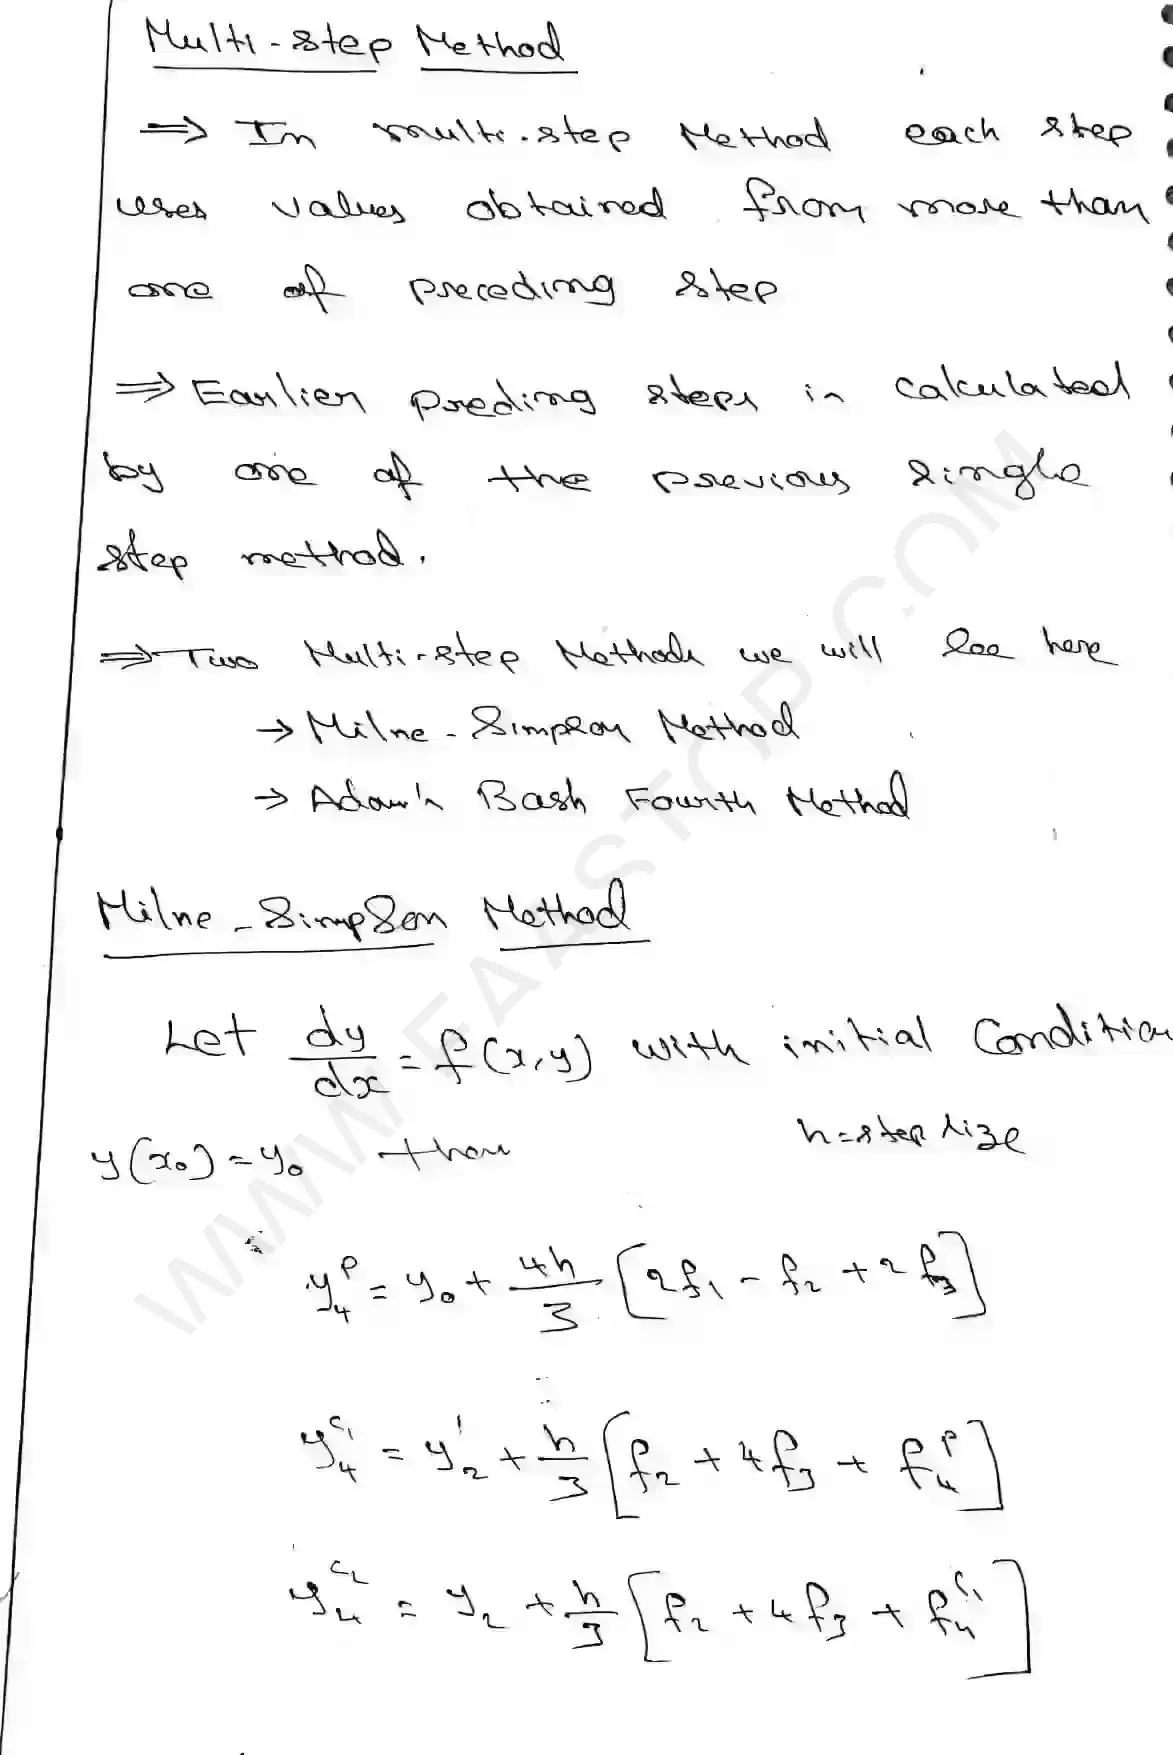 Multi-step Method
⇒ In multi-step Method each step
uses values obtained from more than
one of preceding step
⇒ Earlier preding steps in calculated
by one of the previous single
step method.
⇒ Two Multi-step Methods we will see here
→ Milne-Simpson Method
→ Adam's Bash Fourth Method
Milne-Simpson Method
Let dy/dx = f(x,y) with initial Condition
y(x₀) = y₀ then h = step size
y₄ᵖ = y₀ + 4h/3 [2f₁ - f₂ + 2f₃]
y₄^c₁ = y₂' + h/3 [f₂ + 4f₃ + f₄ᵖ]
y₄^c₂ = y₂ + h/3 [f₂ + 4f₃ + f₄^c₁]
WWW.FAASTOP.COM